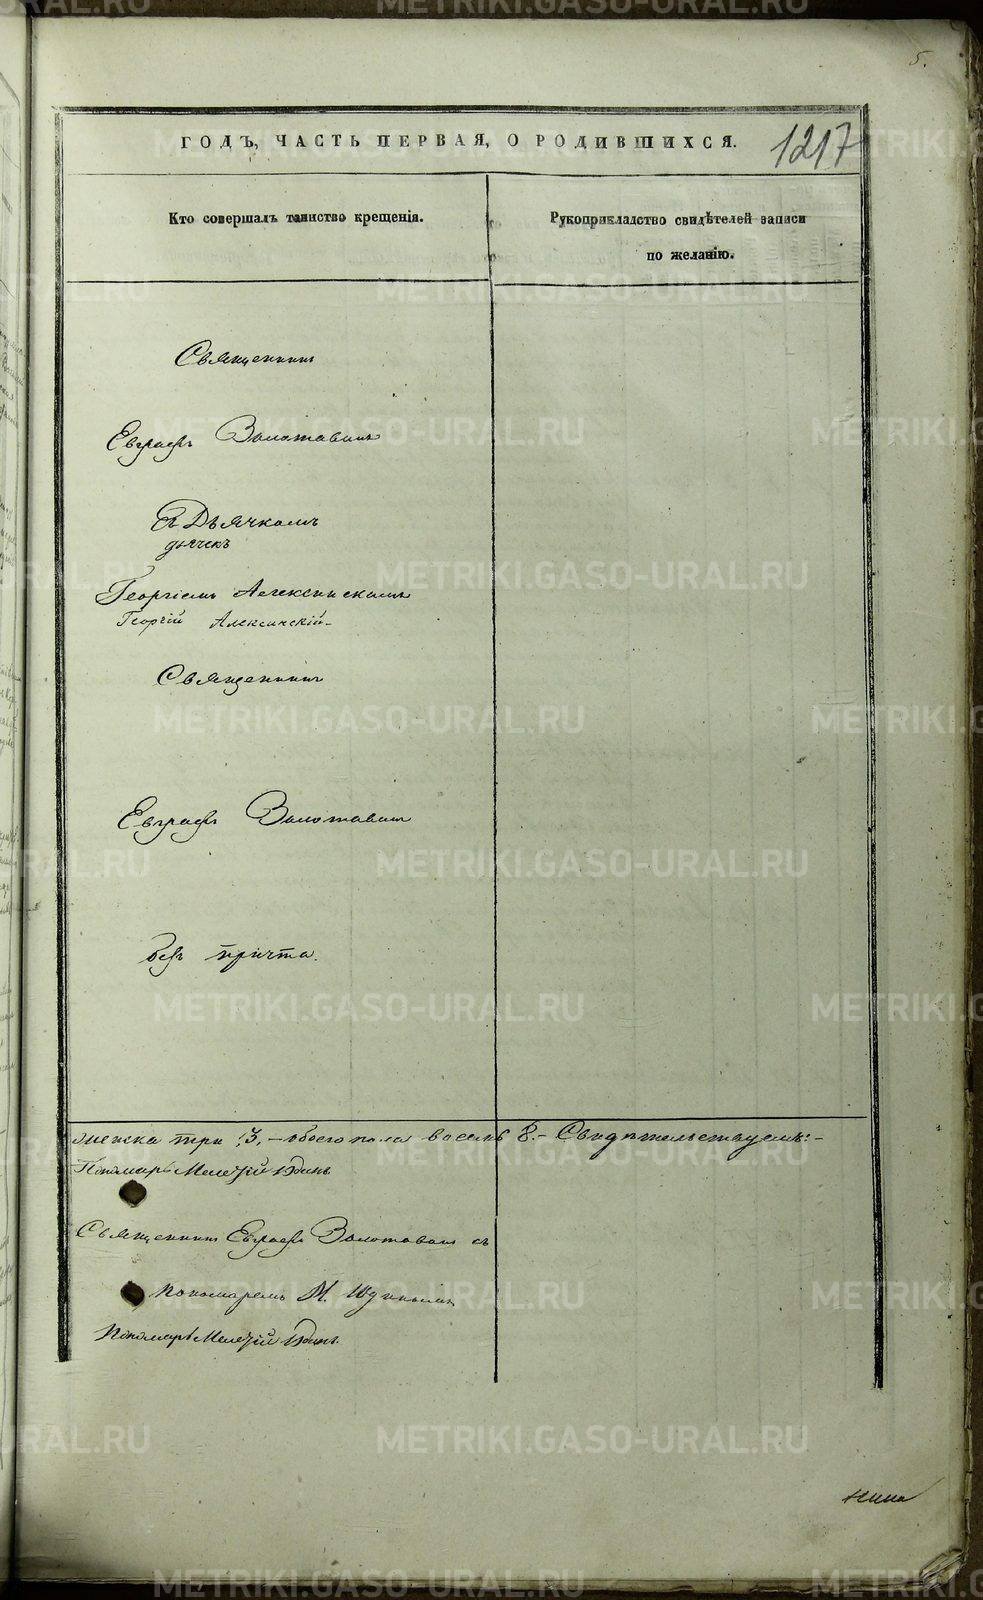 5.
ГОДЪ, ЧАСТЬ ПЕРВАЯ, О РОДИВШИХСЯ.
1217
Кто совершалъ таинство крещенія.
Рукоприкладство свидѣтелей записи
по желанію.
Священникъ
Евграфъ Золотавинъ
съ Дьячкомъ
дьячекъ
Георгіемъ
Георгій
Священникъ
Евграфъ Золотавинъ
безъ причта.
женска три 3. – обоего пола восемь 8. – Свидѣтельствуемъ: –
Пономарь Мелетій Юдинъ
Священникъ Евграфъ Золотавинъ съ
пономаремъ М. Юдинымъ
Пономарь Мелетій Юдинъ.
METRIKI.GASO-URAL.RU